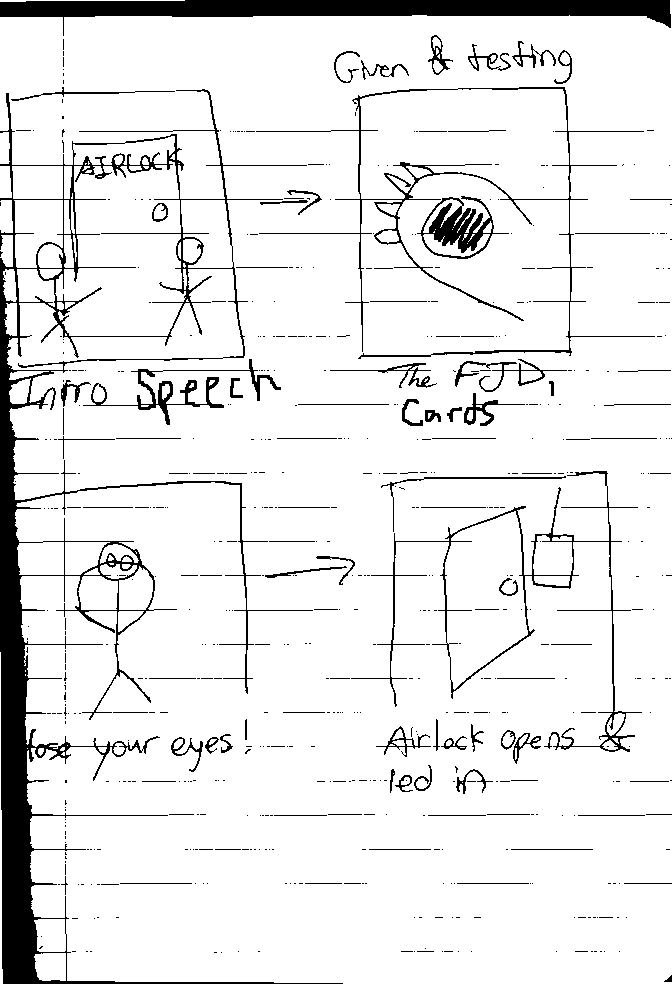 Given & testing
AIRLOCK
Intro Speech
The FJD,
Cards
lose your eyes!
Airlock opens &
led in